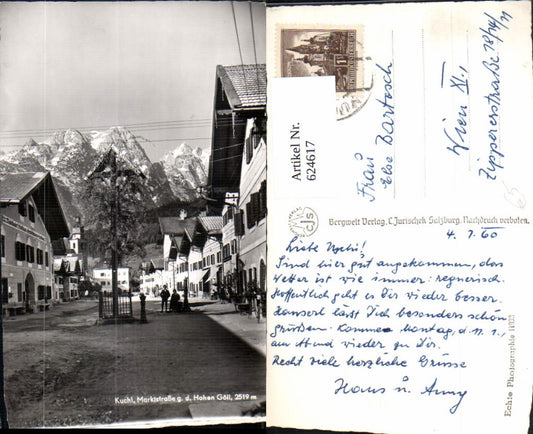 Kuchl, Marktstraße g. d. Hohen Göll, 2519 m
Artikel Nr.
624617
Frau
Else Bartosch
Wien XI.,
Zippererstraße
Bergwelt Verlag, C. Jurischek Salzburg. Nachdruck verboten.
CJS
4. 7. 60
Sind hier gut angekommen, das
Wetter ist wie immer: regnerisch.
Hoffentlich geht es Dir wieder besser.
Hanserl lässt Dich besonders schön
grüßen. Komme Montag, d. 11.,
am Abend wieder zu Dir.
Recht viele herzliche Grüsse
Hans u. Anny
Echte Photographie